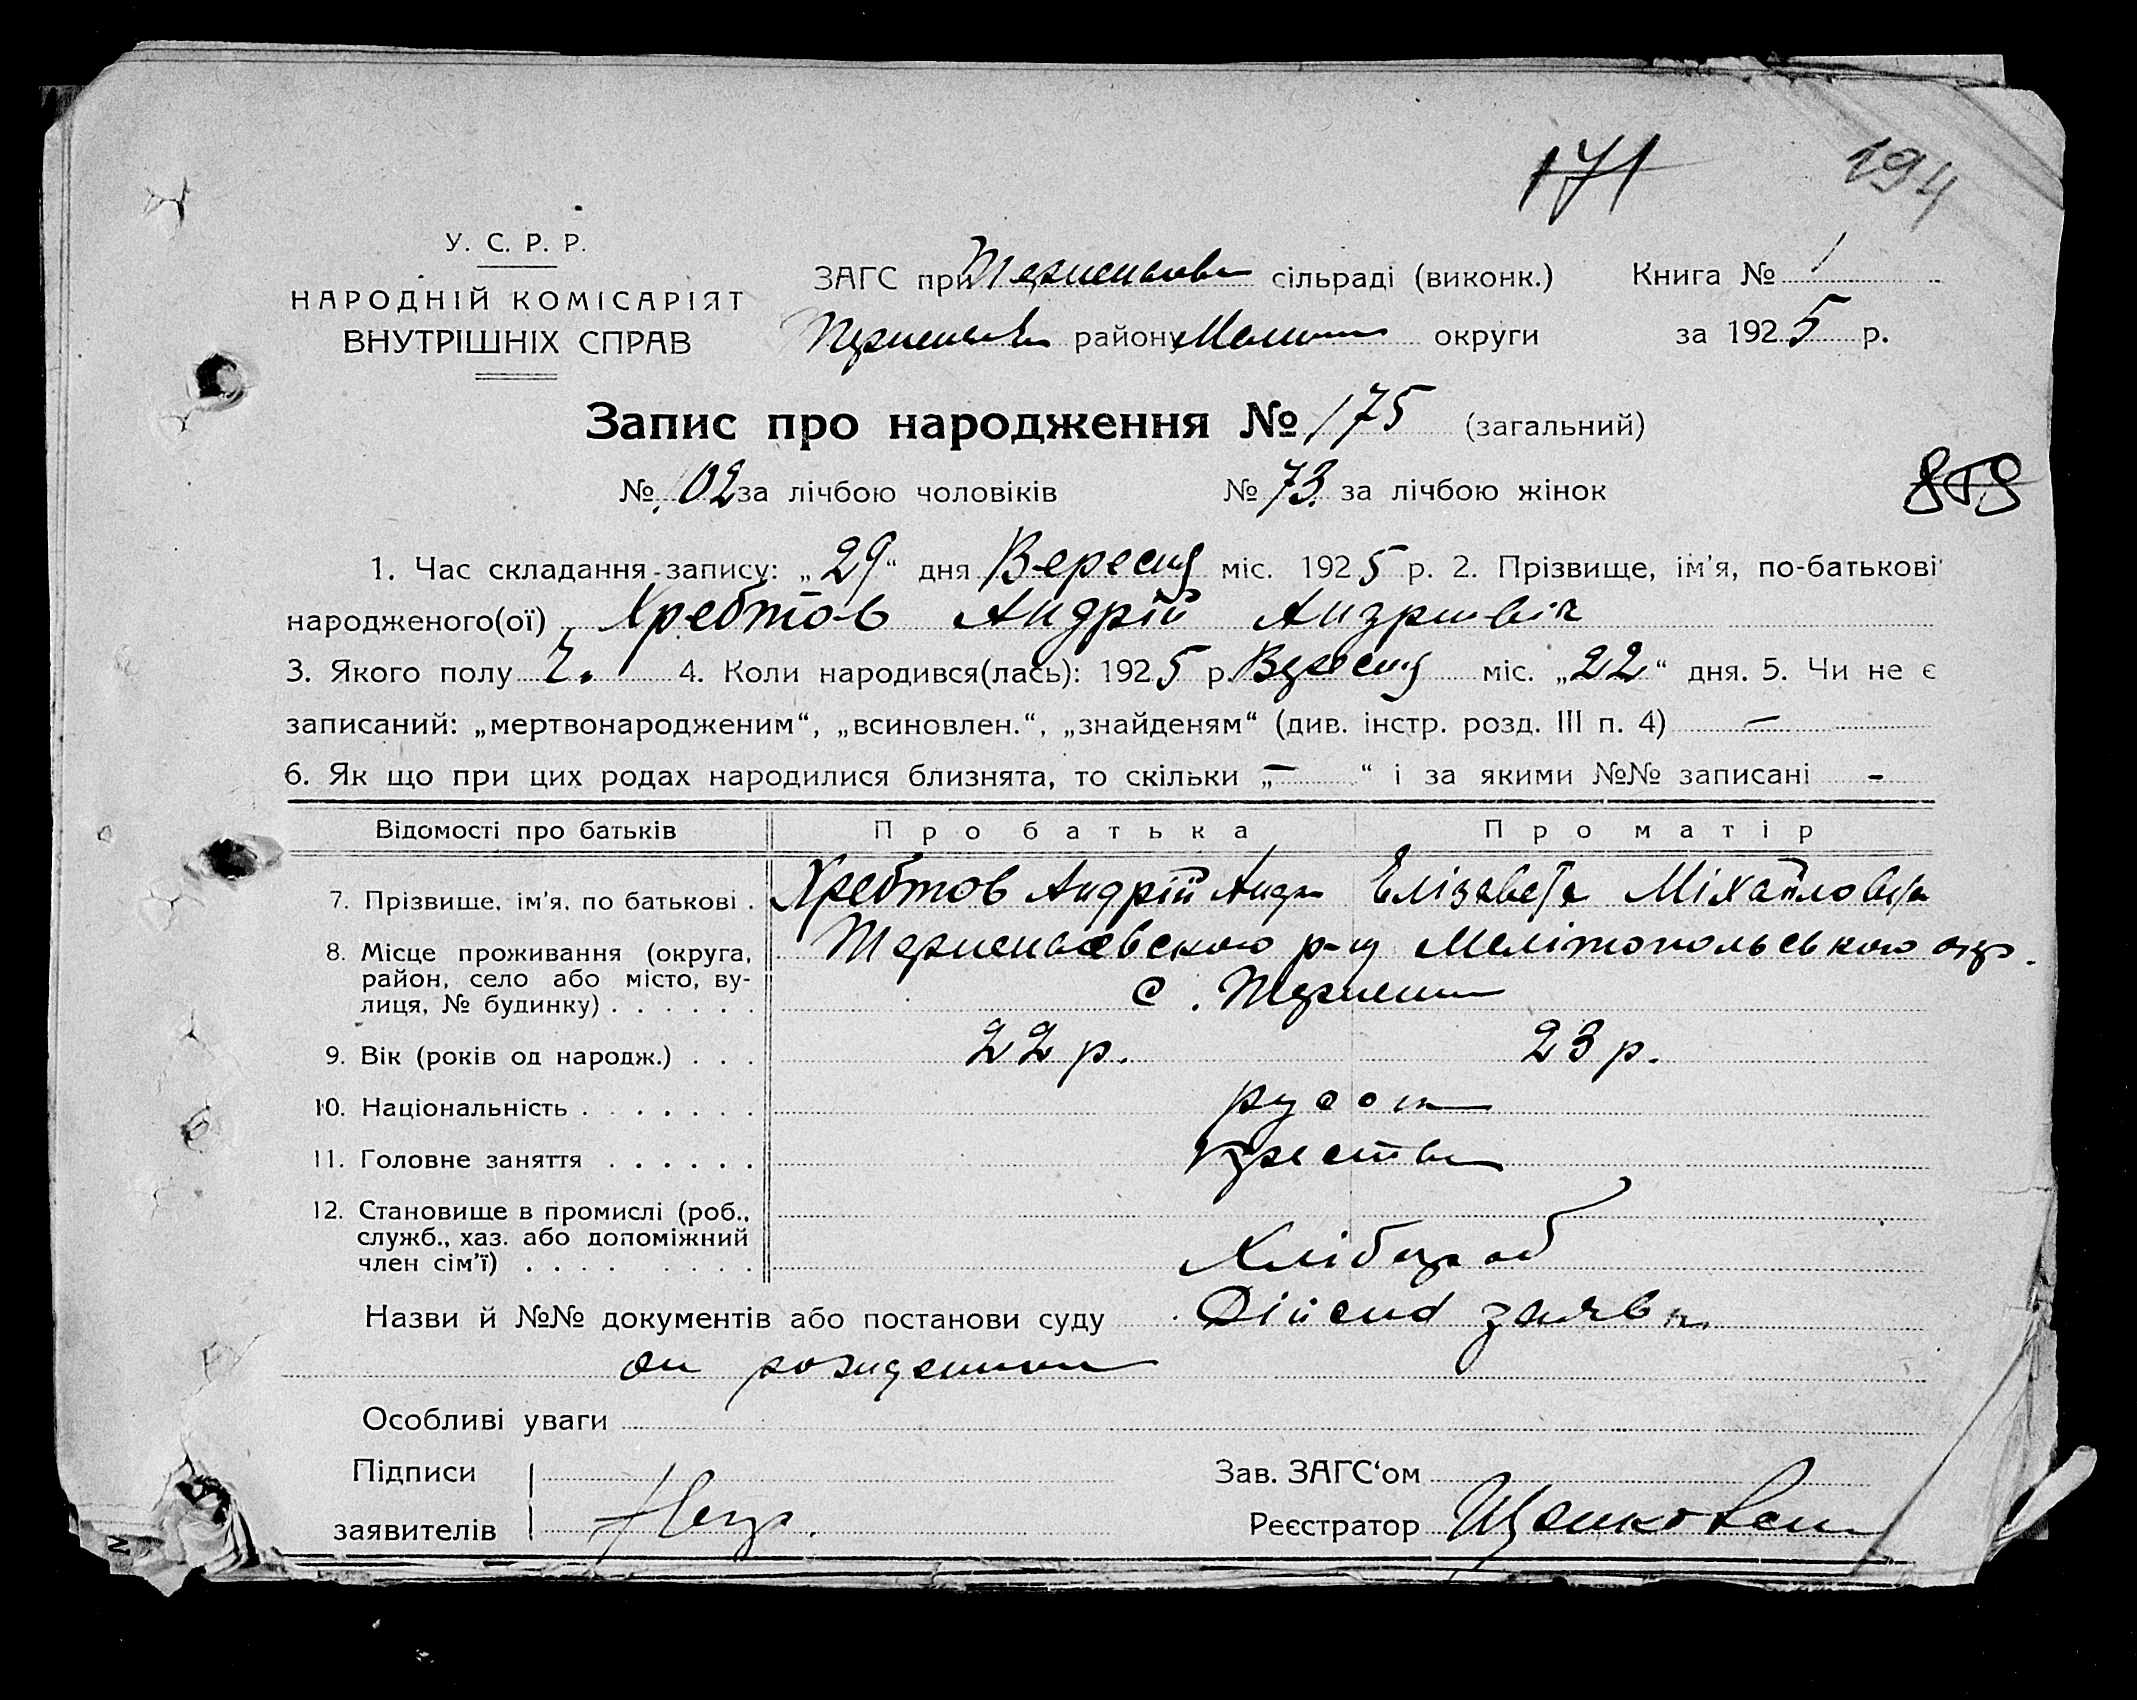 171
194
У. С. Р. Р.
НАРОДНІЙ КОМІСАРІЯТ
ВНУТРІШНІХ СПРАВ
ЗАГС при сільраді (виконк.) Книга № 1
району Меліт округи за 1925 р.
Запис про народження № 175 (загальний)
№ 102 за лічбою чоловіків № 73 за лічбою жінок
1. Час складання запису: „29“ дня Вересня міс. 1925 р. 2. Прізвище, ім'я, по-батькові
народженого(ої) Хребтов Андрій Андрієвіч
3. Якого полу ч. 4. Коли народився(лась): 1925 р. Вересня міс. „22“ дня. 5. Чи не є
записаний: „мертвонародженим“, „всиновлен.“, „знайденям“ (див. інстр. розд. III п. 4) —
6. Як що при цих родах народилися близнята, то скільки „—“ і за якими №№ записані -
Відомості про батьків Про батька Про матір
7. Прізвище, ім'я, по батькові . Хребтов Андрій Андр Елізавета Міхайловна
8. Місце проживання (округа, район, село або місто, вулиця, № будинку) . . . . . . р-ну Мелітопольського окр.
с.
9. Вік (років од народж.) . . . 22 р. 23 р.
10. Національність . . . . . . . русск
11. Головне заняття . . . . . . хреств
12. Становище в промислі (роб.,
служб., хаз. або допоміжний
член сім'ї) . . . . . . . . Хлібороб
Назви й №№ документів або постанови суду заяв
рождении
Особливі уваги
Підписи Зав. ЗАГС'ом
заявителів Негр. Реєстратор